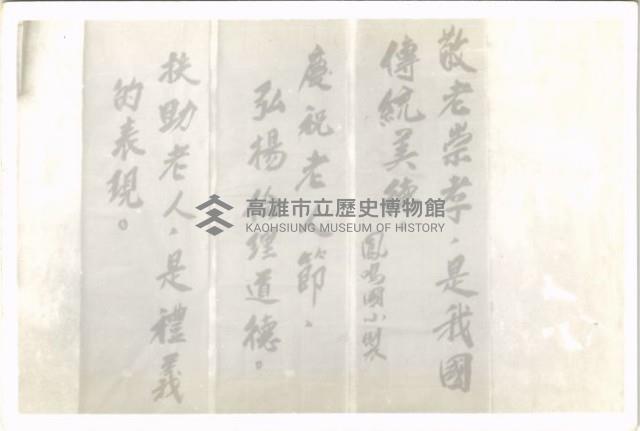 敬老崇孝，是我國
傳統美德
鳳鳴國小製
慶祝老人節，
弘揚倫理道德。
扶助老人，是禮義
的表現。
高雄市立歷史博物館
KAOHSIUNG MUSEUM OF HISTORY